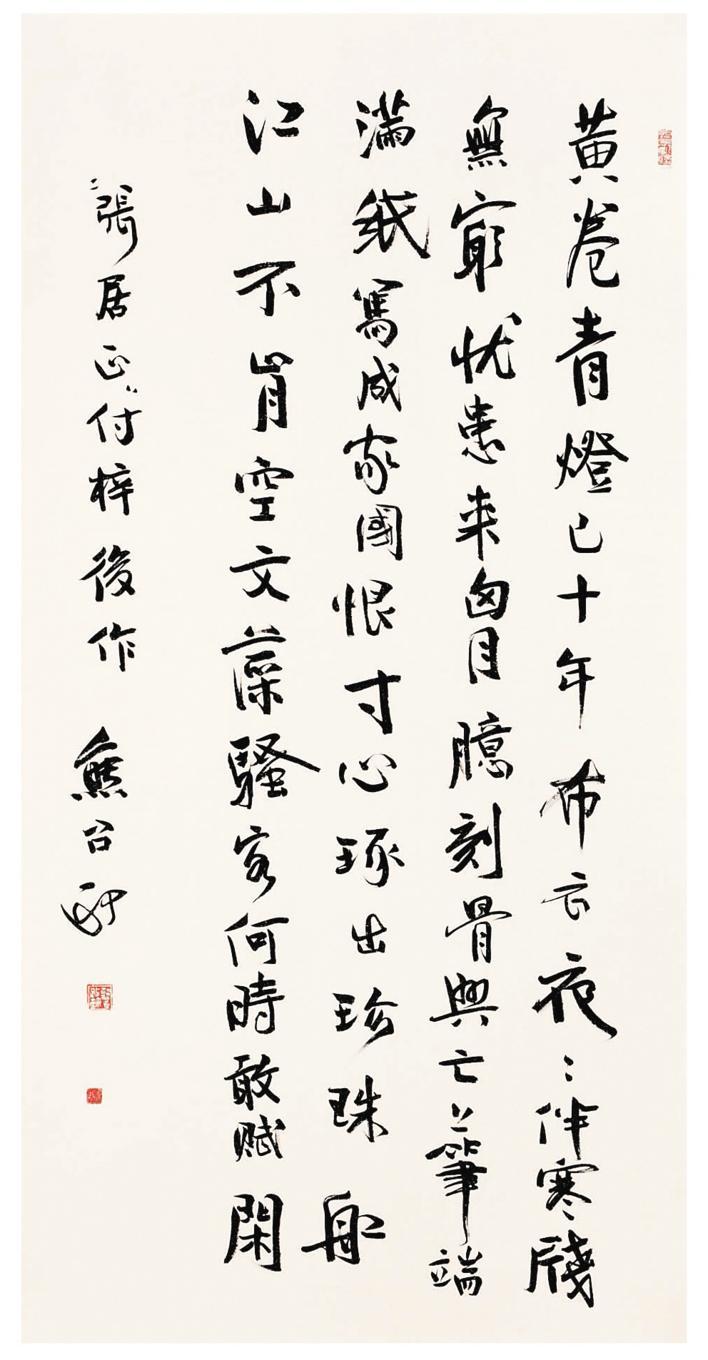 黃卷青燈已十年布衣夜々伴寒牋
無窮忧患来胷臆刻骨興亡上筆端
滿紙寫成家國恨寸心琢出珍珠船
江山不肯空文藻騷客何時敢賦閑
"張居正"付梓後作 熊召政